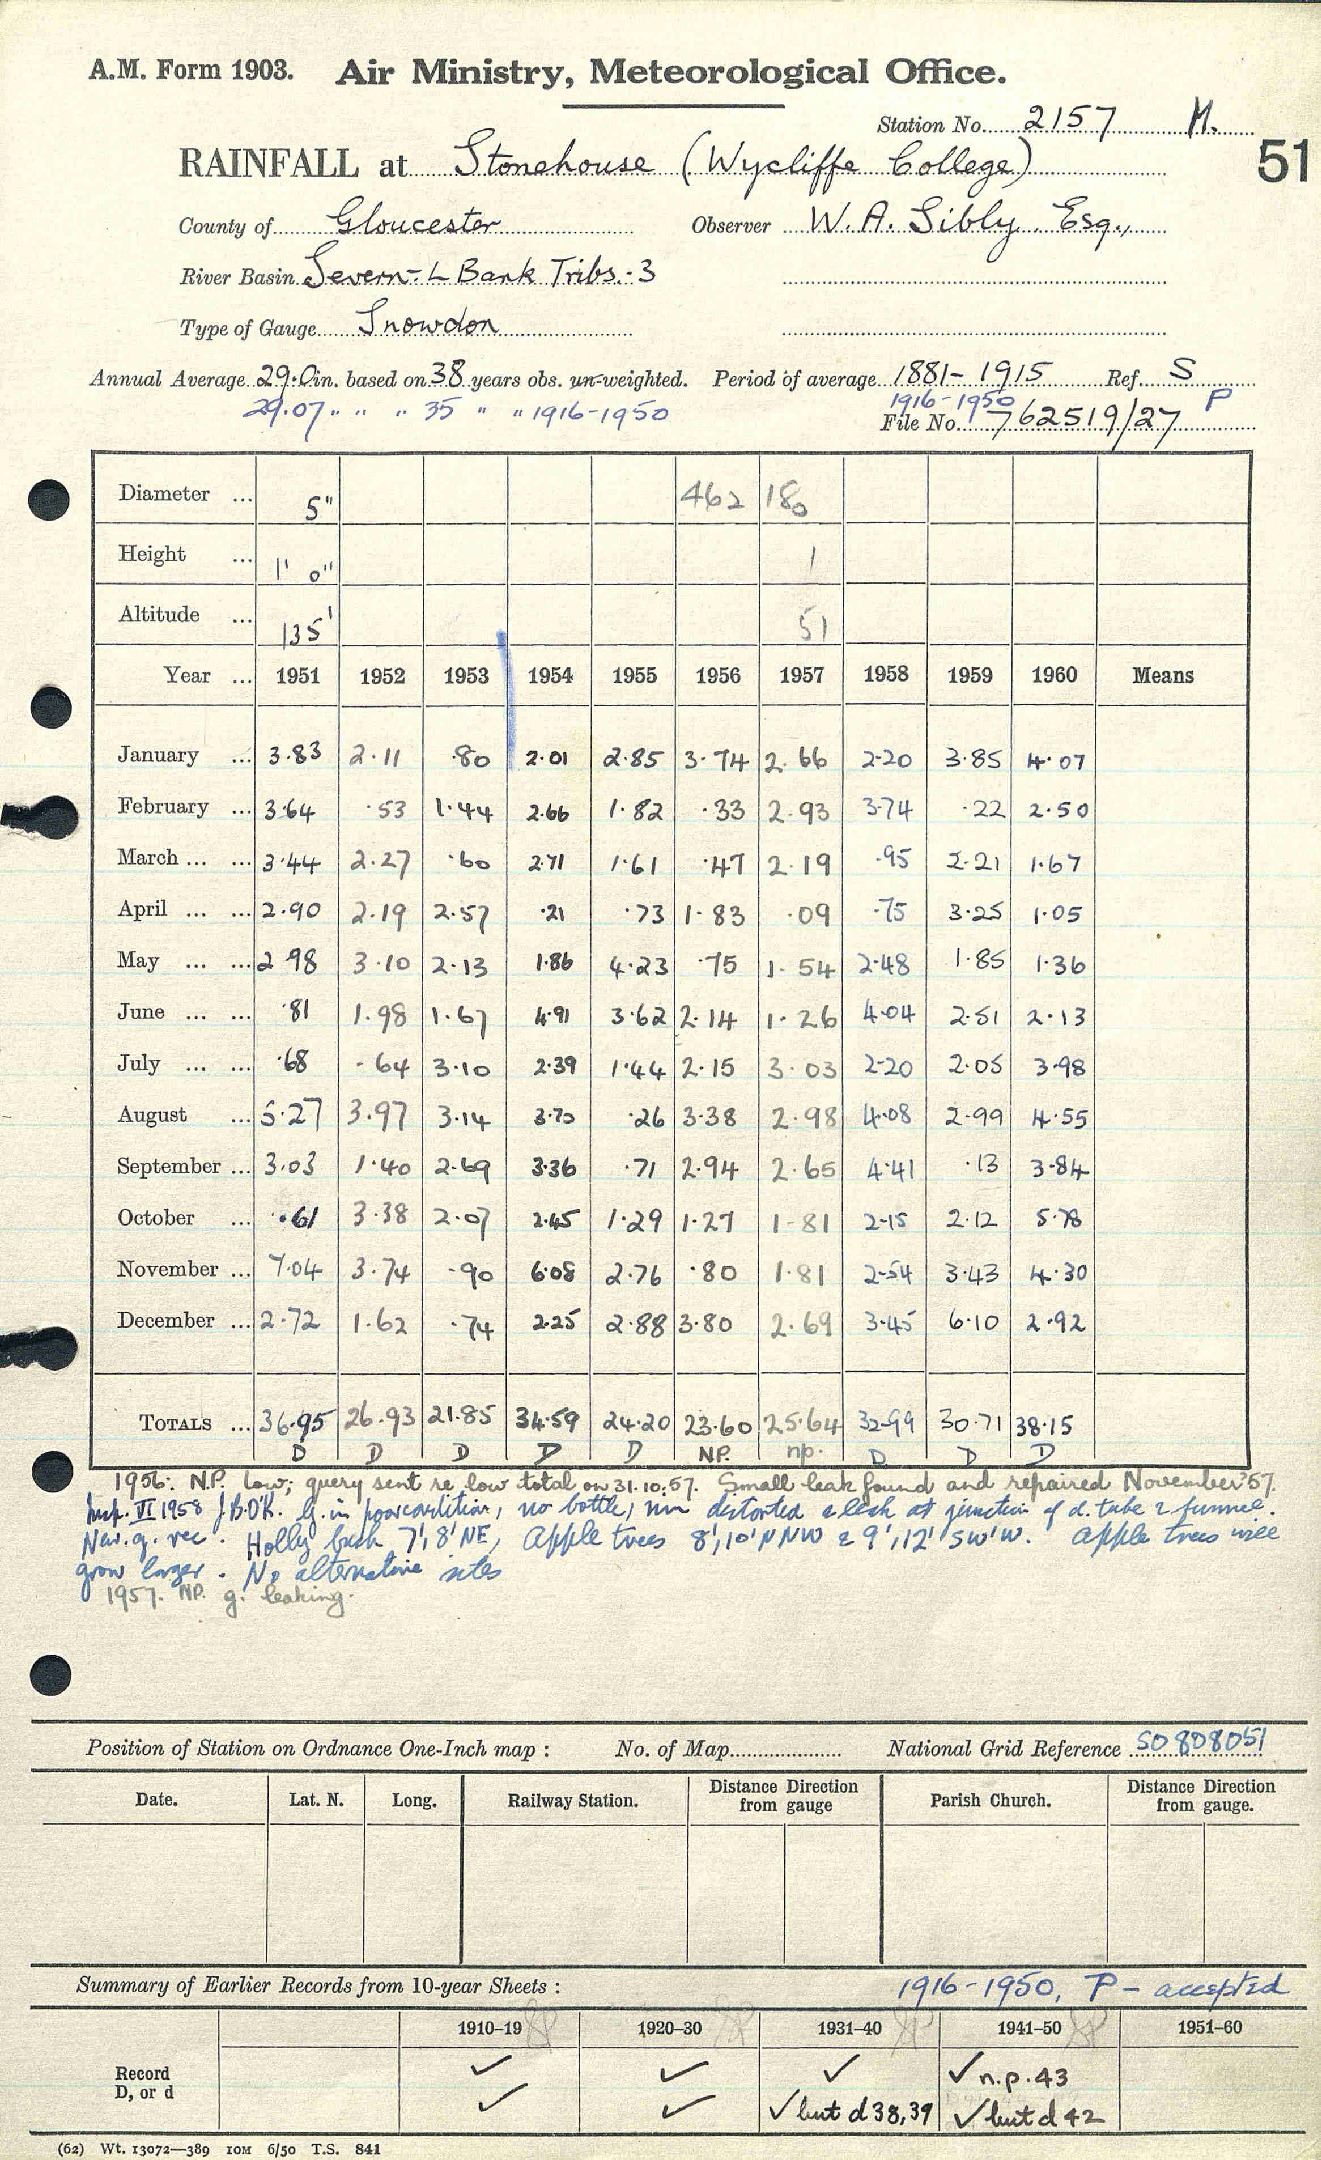 A.M. Form 1903. Air Ministry, Meteorological Office.
Station No. 2157 M.
RAINFALL at Stonehouse (Wycliffe College) 51
County of Gloucester Observer W. A. Sibly. Esq.,
River Basin Severn - L Bank Tribs. - 3
Type of Gauge Snowdon
Annual Average 29.0 in. based on 38 years obs. un-weighted. Period of average 1881 - 1915 Ref. S
29.07 " " " 35 " " 1916-1950 1916-1950 P
File No. 762519/27
Diameter ... 5" 462 180
Height ... 1' 0" 1
Altitude ... 135' 51
Year ... 1951 1952 1953 1954 1955 1956 1957 1958 1959 1960 Means
January ... 3.83 2.11 .80 2.01 2.85 3.74 2.66 2.20 3.85 4.07
February ... 3.64 .53 1.44 2.66 1.82 .33 2.93 3.74 .22 2.50
March ... ... 3.44 2.27 .60 2.71 1.61 .47 2.19 .95 2.21 1.67
April ... ... 2.90 2.19 2.57 .21 .73 1.83 .09 .75 3.25 1.05
May ... ... 2.98 3.10 2.13 1.86 4.23 .75 1.54 2.48 1.85 1.36
June ... ... .81 1.98 1.67 4.91 3.62 2.14 1.26 4.04 2.51 2.13
July ... ... .68 .64 3.10 2.39 1.44 2.15 3.03 2.20 2.05 3.98
August ... 5.27 3.97 3.14 3.70 .26 3.38 2.98 4.08 2.99 4.55
September ... 3.03 1.40 2.69 3.36 .71 2.94 2.65 4.41 .13 3.84
October ... .61 3.38 2.07 2.45 1.29 1.27 1.81 2.15 2.12 5.78
November ... 7.04 3.74 .90 6.08 2.76 .80 1.81 2.54 3.43 4.30
December ... 2.72 1.62 .74 2.25 2.88 3.80 2.69 3.45 6.10 2.92
TOTALS ... 36.95 26.93 21.85 34.59 24.20 23.60 25.64 32.99 30.71 38.15
D D D D D NP. np. D D D
1956: N.P. Low; query sent re low total on 31.10.57. Small leak found and repaired November '57.
Insp. VI 1958 J.B.O'K. G. in poor condition, no bottle, rim distorted & leak at junction of d. tube & funnel.
New. g. rec. Holly bush 7', 8' NE, Apple trees 8', 10' NNW & 9', 12' SW'W. Apple trees will
grow larger. No alternative sites
1957. NP. g. leaking.
Position of Station on Ordnance One-Inch map : No. of Map National Grid Reference SO 808051
Date. Lat. N. Long. Railway Station. Distance Direction from gauge Parish Church. Distance Direction from gauge.
Summary of Earlier Records from 10-year Sheets : 1916-1950, P - accepted
1910-19 1920-30 1931-40 1941-50 1951-60
Record ✓ ✓ ✓ ✓ n.p. 43
D, or d ✓ ✓ ✓ but d 38, 39 ✓ but d 42
(62) Wt. 13072—389 10M 6/50 T.S. 841